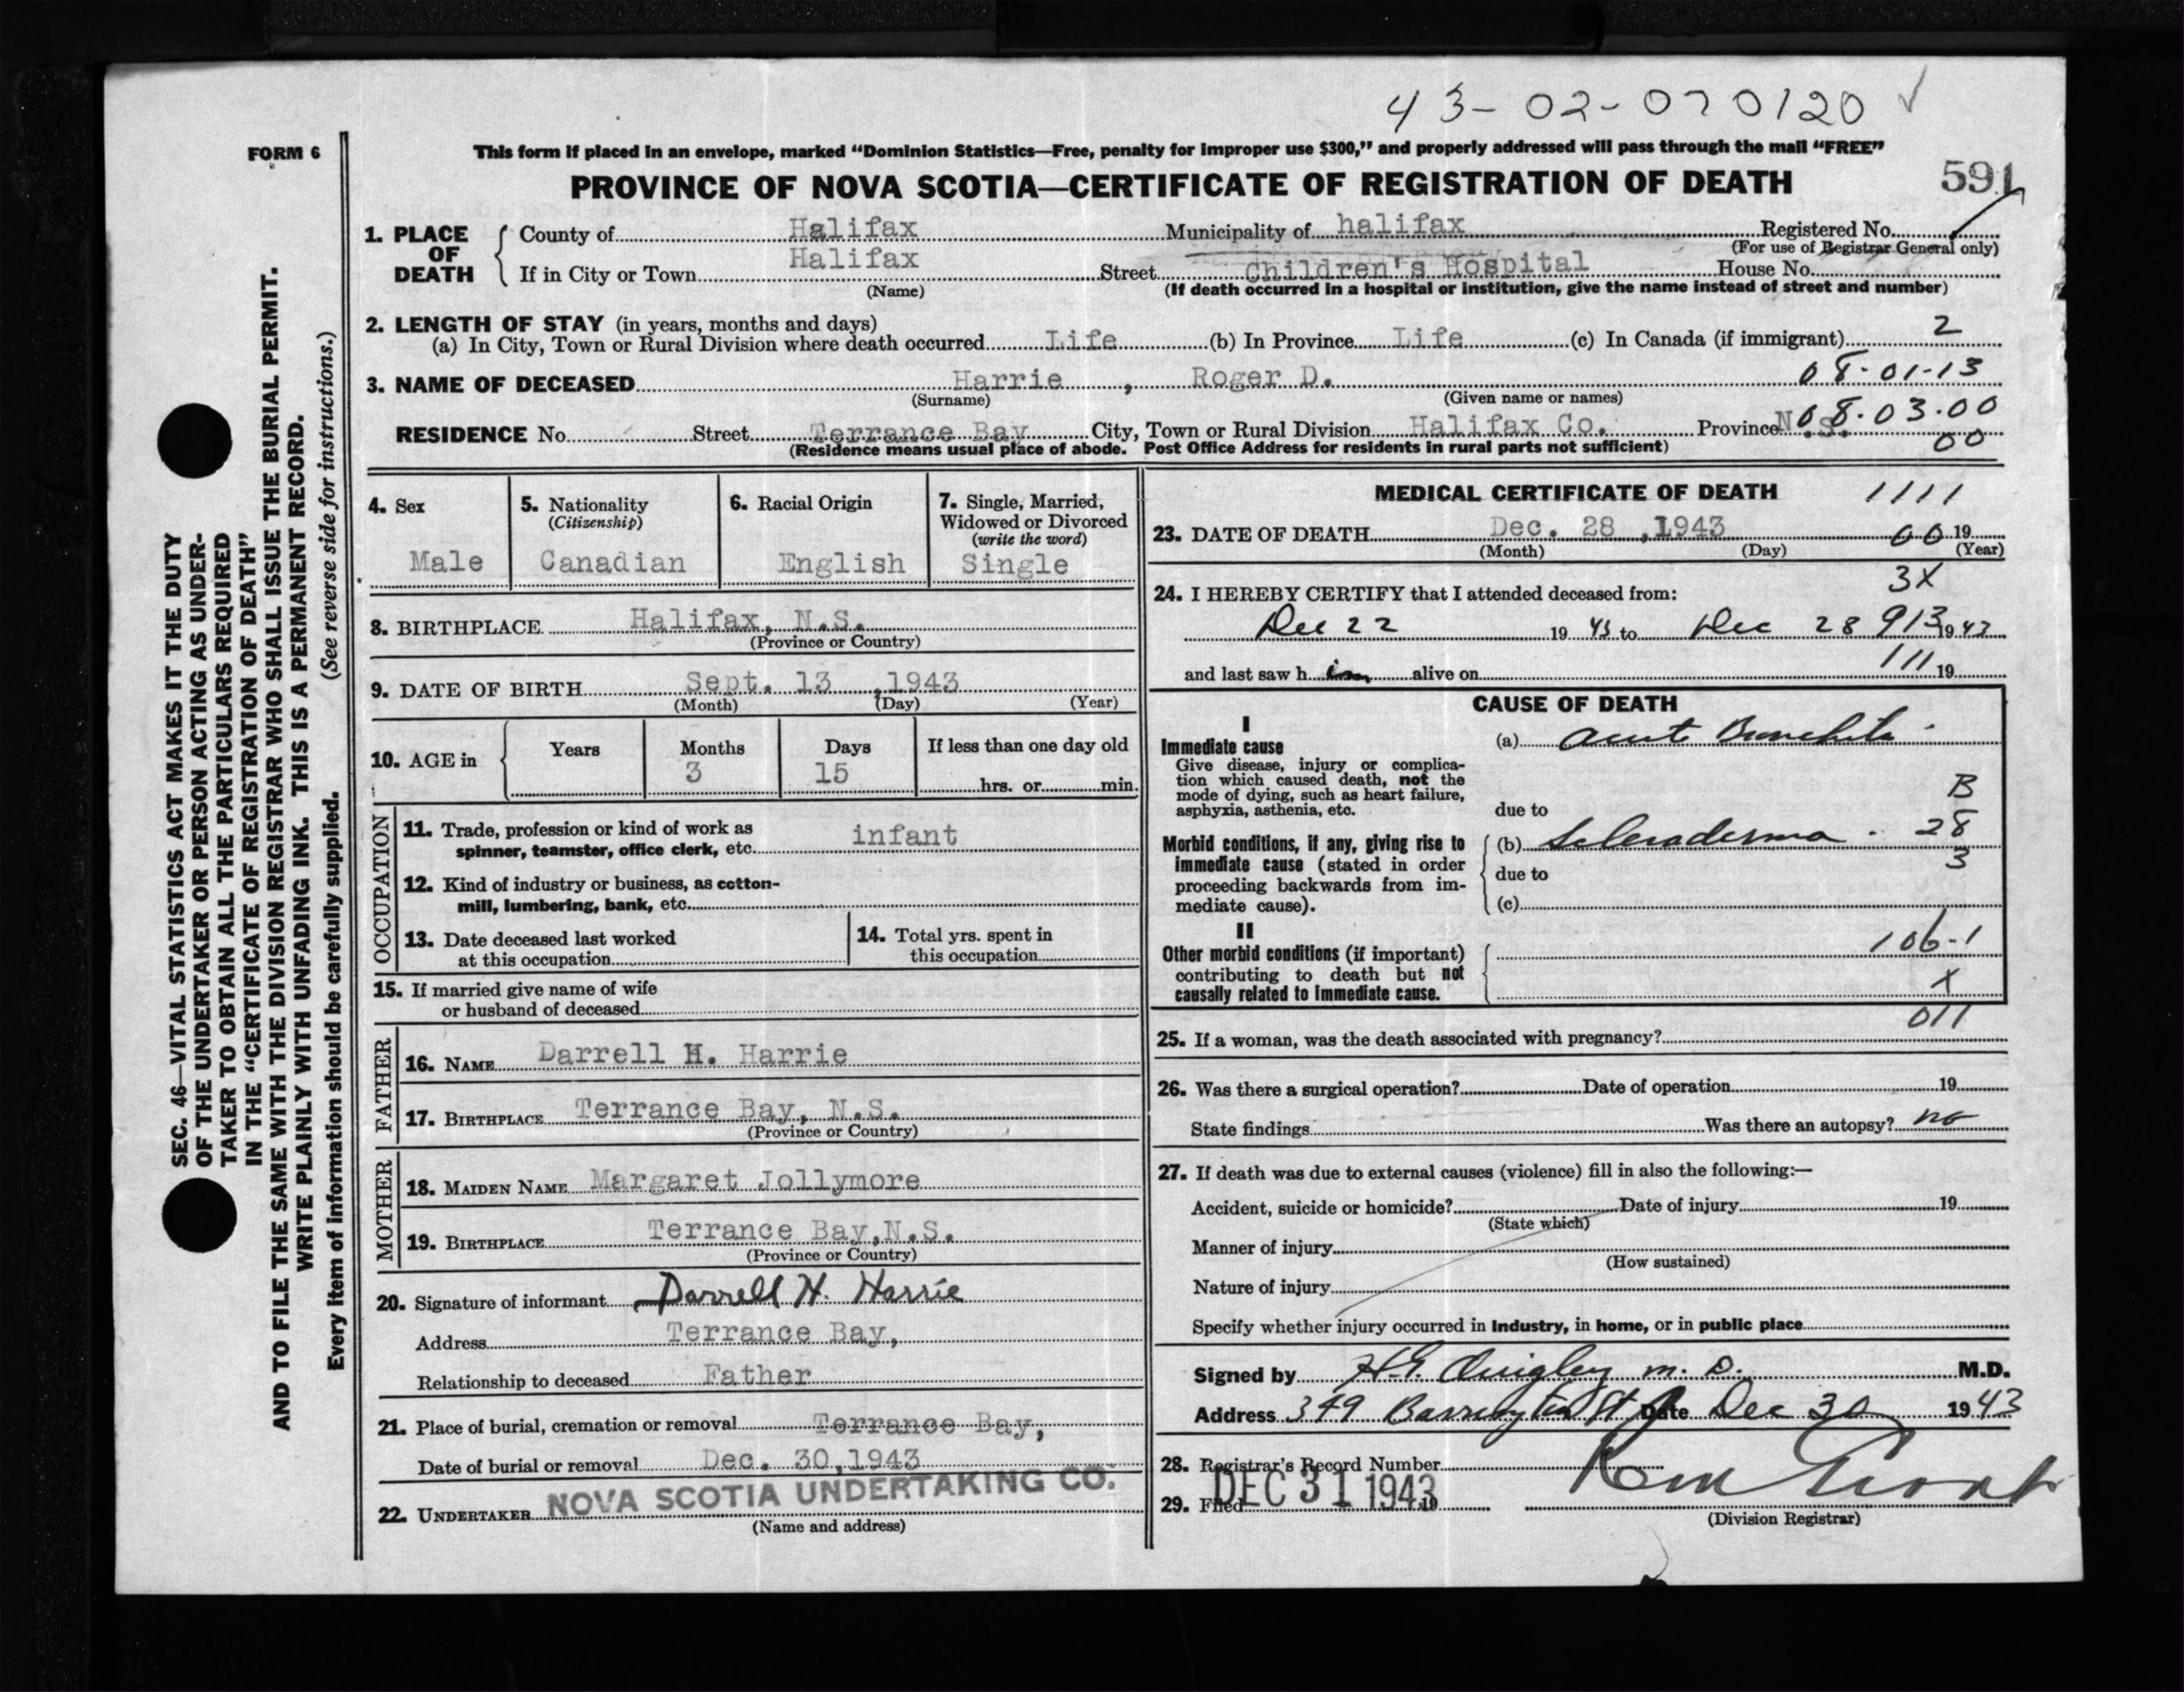 43-02-070120 ✓
FORM 6
This form if placed in an envelope, marked “Dominion Statistics—Free, penalty for improper use $300,” and properly addressed will pass through the mail “FREE”
PROVINCE OF NOVA SCOTIA—CERTIFICATE OF REGISTRATION OF DEATH
591
1. PLACE OF DEATH
County of Halifax Municipality of halifax Registered No.
(For use of Registrar General only)
If in City or Town Halifax Street Children's Hospital House No.
(Name) (If death occurred in a hospital or institution, give the name instead of street and number)
2. LENGTH OF STAY (in years, months and days)
(a) In City, Town or Rural Division where death occurred Life (b) In Province Life (c) In Canada (if immigrant) 2
08-01-13
3. NAME OF DECEASED Harrie , Roger D.
(Surname) (Given name or names)
08.03.00
RESIDENCE No. Street Terrance Bay City, Town or Rural Division Halifax Co. Province N.S.
00
(Residence means usual place of abode. Post Office Address for residents in rural parts not sufficient)
4. Sex
Male
5. Nationality
(Citizenship)
Canadian
6. Racial Origin
English
7. Single, Married,
Widowed or Divorced
(write the word)
Single
8. BIRTHPLACE Halifax, N.S.
(Province or Country)
9. DATE OF BIRTH Sept. 13 ,1943
(Month) (Day) (Year)
10. AGE in
Years Months Days If less than one day old
3 15
hrs. or min.
OCCUPATION
11. Trade, profession or kind of work as
spinner, teamster, office clerk, etc. infant
12. Kind of industry or business, as cotton-
mill, lumbering, bank, etc.
13. Date deceased last worked
at this occupation
14. Total yrs. spent in
this occupation
15. If married give name of wife
or husband of deceased
FATHER
16. NAME Darrell H. Harrie
17. BIRTHPLACE Terrance Bay, N.S.
(Province or Country)
MOTHER
18. MAIDEN NAME Margaret Jollymore
19. BIRTHPLACE Terrance Bay,N.S.
(Province or Country)
20. Signature of informant Darrell H. Harrie
Address Terrance Bay,
Relationship to deceased Father
21. Place of burial, cremation or removal Terrance Bay,
Date of burial or removal Dec. 30,1943
22. UNDERTAKER NOVA SCOTIA UNDERTAKING CO.
(Name and address)
MEDICAL CERTIFICATE OF DEATH 1111
23. DATE OF DEATH Dec. 28 ,1943 00 19
(Month) (Day) (Year)
3X
24. I HEREBY CERTIFY that I attended deceased from:
Dec 22 19 43 to Dec 28 913 19 43
and last saw h im alive on 111 19
CAUSE OF DEATH
I
Immediate cause
Give disease, injury or complica-
tion which caused death, not the
mode of dying, such as heart failure,
asphyxia, asthenia, etc.
(a) acute Bronchitis
B
due to
Morbid conditions, if any, giving rise to
immediate cause (stated in order
proceeding backwards from im-
mediate cause).
(b) Scleraderma . 28
3
due to
(c)
II
Other morbid conditions (if important)
contributing to death but not
causally related to immediate cause.
106-1
X
011
25. If a woman, was the death associated with pregnancy?
26. Was there a surgical operation? Date of operation 19
State findings Was there an autopsy? no
27. If death was due to external causes (violence) fill in also the following:—
Accident, suicide or homicide? Date of injury 19
(State which)
Manner of injury
(How sustained)
Nature of injury
Specify whether injury occurred in industry, in home, or in public place
Signed by H.G. Quigley m. D. M.D.
Address 349 Barrington St Date Dec 30 19 43
28. Registrar's Record Number
29. Filed DEC 31 1943 19
(Division Registrar)
SEC. 46—VITAL STATISTICS ACT MAKES IT THE DUTY
OF THE UNDERTAKER OR PERSON ACTING AS UNDER-
TAKER TO OBTAIN ALL THE PARTICULARS REQUIRED
IN THE “CERTIFICATE OF REGISTRATION OF DEATH”
AND TO FILE THE SAME WITH THE DIVISION REGISTRAR WHO SHALL ISSUE THE BURIAL PERMIT.
WRITE PLAINLY WITH UNFADING INK. THIS IS A PERMANENT RECORD.
Every item of information should be carefully supplied. (See reverse side for instructions.)